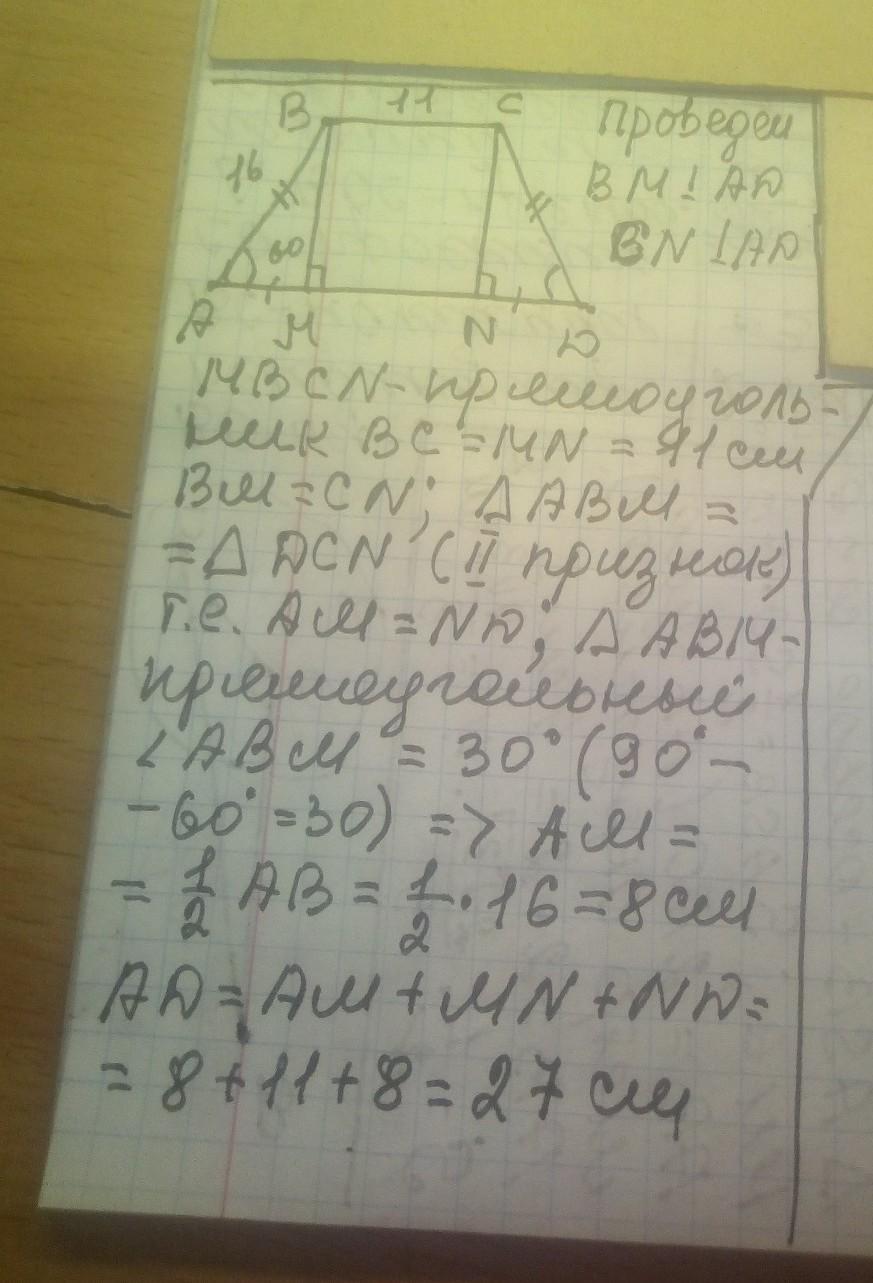 B 11 C
16
60
A M N D
Проведем
BM⊥AD
CN⊥AD
MBCN-прямоуголь-
ник BC=MN=11см
BM=CN; △ABM =
=△DCN (II признак)
т.е. AM=ND; △ABM-
прямоугольный
<ABM = 30° (90°-
-60°=30) => AM=
= 1/2 AB = 1/2 · 16 = 8 см
AD = AM + MN + ND =
= 8 + 11 + 8 = 27 см